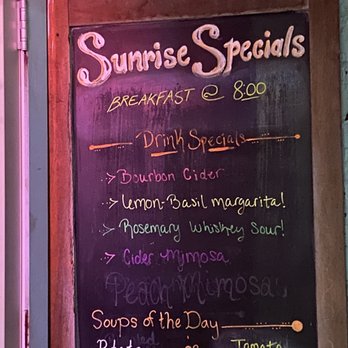 Sunrise Specials
BREAKFAST @ 8:00
Drink Specials
Bourbon Cider
Lemon-Basil margarita!
Rosemary Whiskey Sour!
Cider Mimosa
Peach Mimosa
Soups of the Day
Tomato